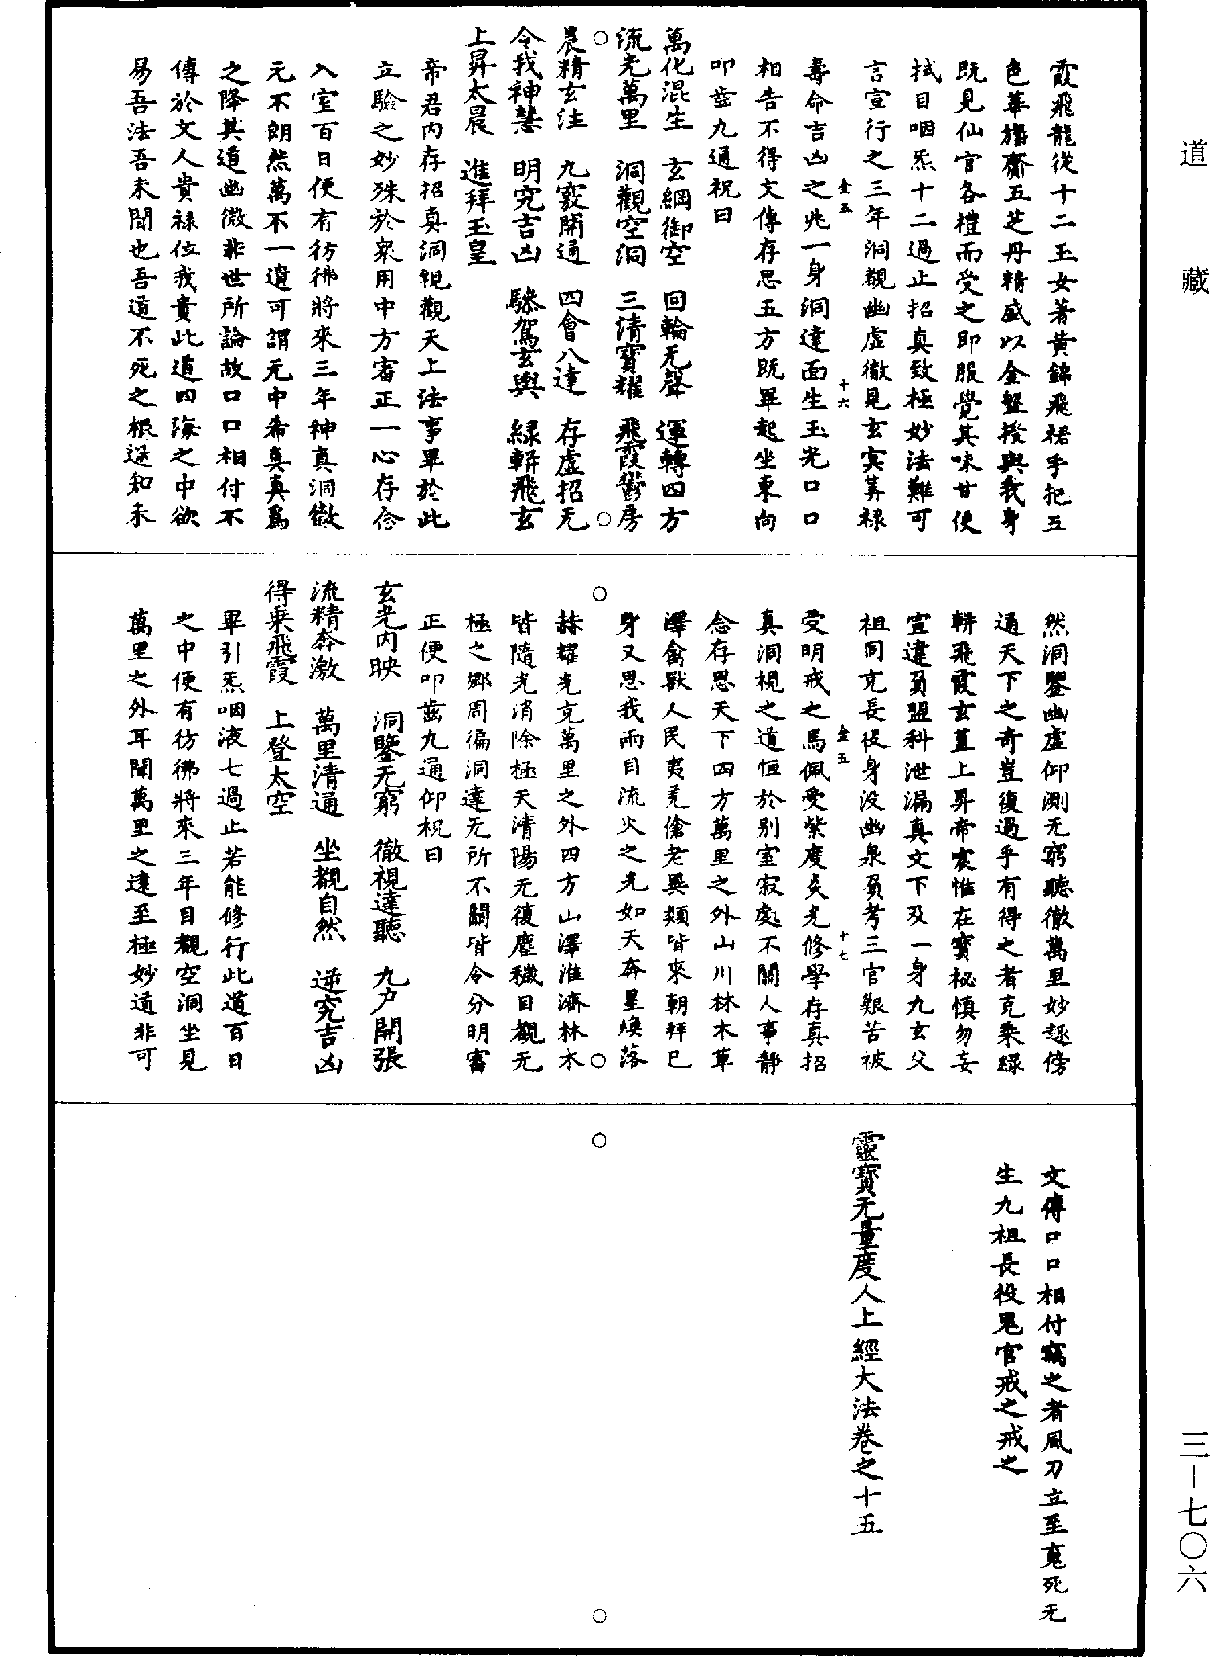 道藏
霞飛龍從十二玉女著黃錦飛裙手把五
色華旛齎五芝丹精盛以金盤授與我身
既見仙官各禮而受之即服覺其味甘便
拭目咽炁十二過止招真致極妙法難可
言宣行之三年洞觀幽虛徹見玄冥算祿
壽命吉凶之兆一身洞達面生玉光口口
相告不得文傳存思五方既畢起坐東向
叩齒九通祝曰
萬化混生　玄綱御空　回輪无聲　運轉四方
流光萬里　洞觀空洞　三清寶耀　飛霞鬱房
晨精玄注　九竅開通　四會八達　存虛招无
令我神慧　明究吉凶　驂駕玄輿　綠軿飛玄
上昇太晨　進拜玉皇
帝君內存招真洞視觀天上法事畢於此
立驗之妙殊於眾用中方審正一心存念
入室百日便有彷彿將來三年神真洞徹
元不朗然萬不一遺可謂元中希真真為
之降其道幽微非世所論故口口相付不
傳於文人貴祿位我貴此道四海之中欲
易吾法吾未聞也吾道不死之根遂知未
然洞鑒幽虛仰測无窮聽徹萬里妙逐傍
通天下之奇豈復過乎有得之者克乘綠
軿飛霞玄蓋上昇帝宸惟在寶祕慎勿妄
宣違負盟科泄漏真文下及一身九玄父
祖同充長役身沒幽泉負考三官艱苦被
受明戒之焉佩受紫度炎光修學存真招
真洞視之道恒於別室寂處不關人事靜
念存思天下四方萬里之外山川林木草
澤禽獸人民夷羌傖老異類皆來朝拜已
身又思我兩目流火之光如天奔星煥落
赫耀光充萬里之外四方山澤淮濟林木
皆隨光消除極天清陽无復塵穢目觀无
極之鄉周徧洞達无所不關皆令分明審
正便叩齒九通仰祝曰
玄光內映　洞鑒无窮　徹視達聽　九戶開張
流精奔激　萬里清通　坐觀自然　逆究吉凶
得乘飛霞　上登太空
畢引炁咽液七過止若能修行此道百日
之中便有彷彿將來三年目觀空洞坐見
萬里之外耳聞萬里之達至極妙道非可
文傳口口相付竊之者風刀立至冤死无
生九祖長役鬼官戒之戒之
靈寶无量度人上經大法卷之十五
三－七〇六